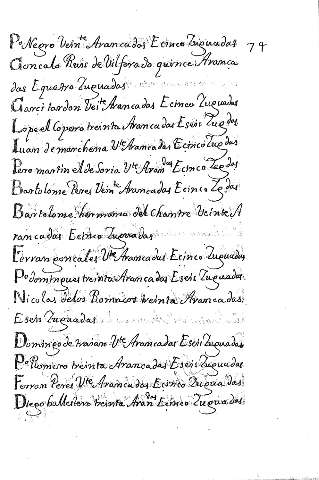 Po Negro Veinte Arancadas E cinco Zuguadas 74
Gonçalo Ruis de Vilforado quince Aranca
das E quatro Zuguadas
Garci tardon Vte Arancadas E cinco Zuguadas
Lope el Copero treinta Arancadas E seis Zugdas
Iuan de marchena Vte Arancadas E cinco Zugdas
Pero martin el de Soria Vte Arandas E cinco Zugdas
Bartolome Peres Veinte Arancadas E cinco Zugdas
Bartolome hermano del Chantre Veinte A
rancadas E cinco Zuguadas
Ferran gonçales Vte Arancadas E cinco Zuguadas
Po domingues treinta Arancadas E seis Zuguadas
Nicolas delos Romanços treinta Arancadas
E seis Zuguadas
Domingo de traiano Vte Arancadas E seis Zuguadas
Po Romero treinta Arancadas E seis Zuguadas
Ferran Peres Vte Arancadas E cinco Zuguadas
Diego ballestero treinta Arandas E cinco Zuguadas